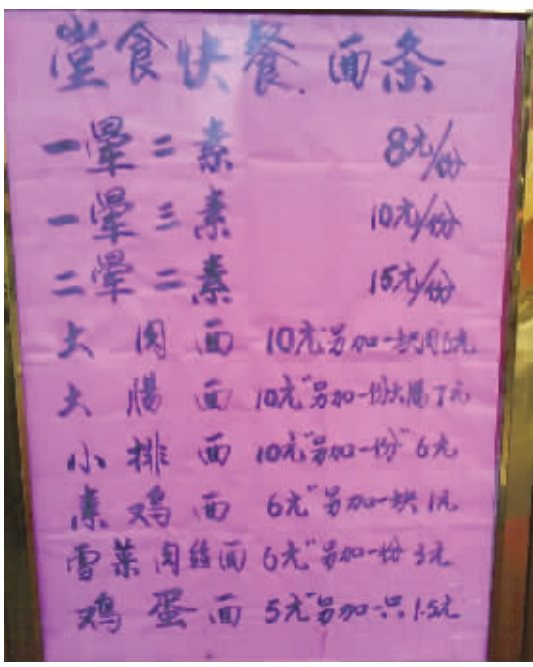 堂食快餐.面条
一晕二素 8元/份
一晕三素 10元/份
二晕二素 15元/份
大肉面 10元"另加一块肉6元
大腸面 10元"另加一份大腸7元
小排面 10元"另加一份"6元
素鸡面 6元"另加一块1元
雪菜肉丝面 6元"另加一份3元
鸡蛋面 5元"另加一只1.5元